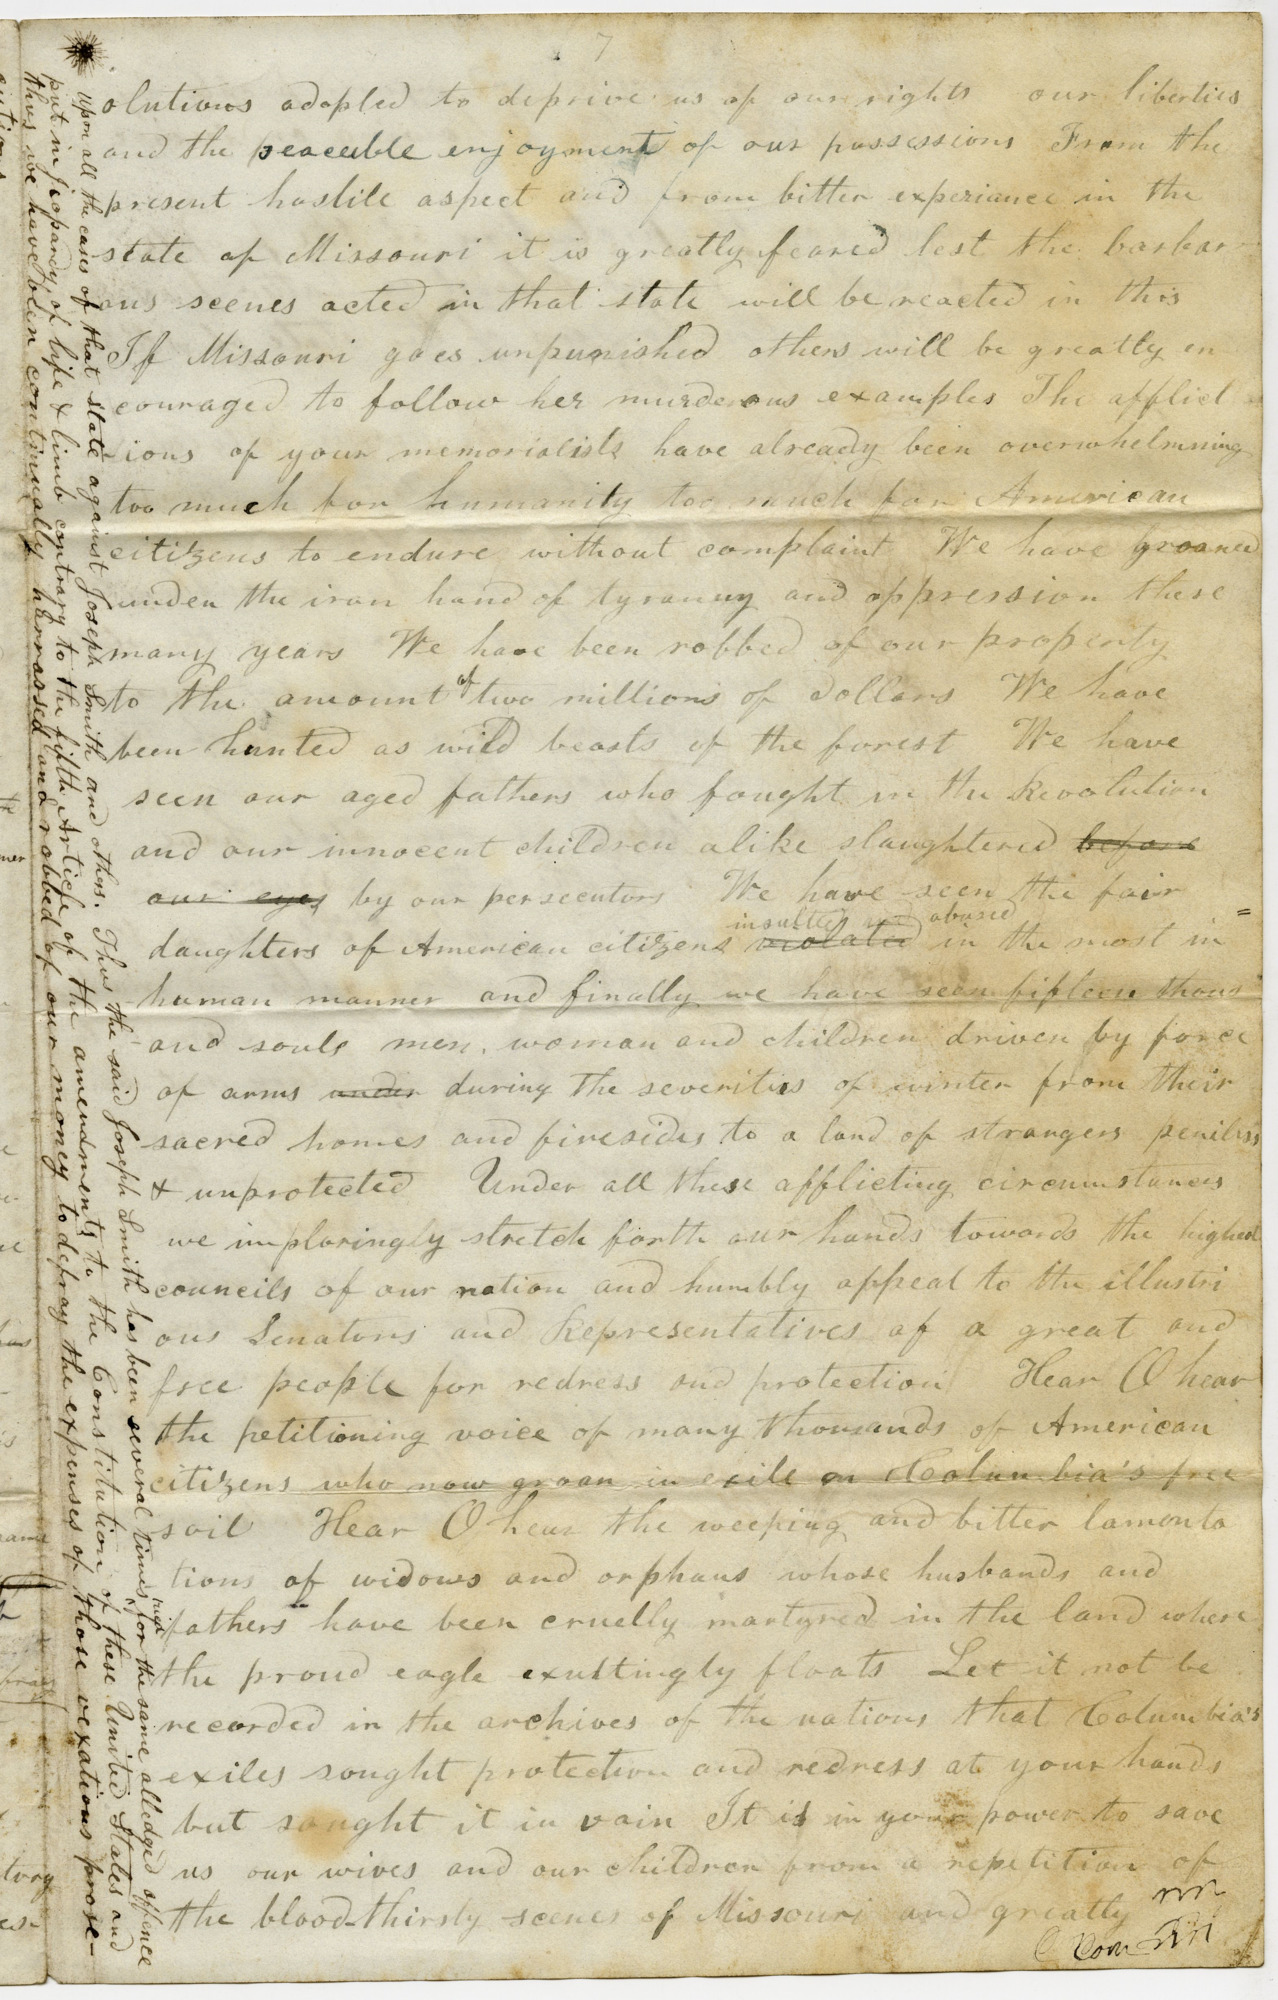 7
olutions adopted to deprive us of our rights our liberties
and the peaceble enjoyment of our possessions From the
present hostile aspect and from bitter experiance in the
state of Missouri it is greatly feared lest the barbar
ous scenes acted in that state will be reacted in this
If Missouri goes unpunished others will be greatly en
couraged to follow her murderous examples The afflict
ions of your memorialists have already been overwhelmning
too much for humanity too much for American
citizens to endure without complaint We have groaned
under the iron hand of tyranny and oppression these
many years We have been robbed of our property
to the amount of two millions of dollars We have
been hunted as wild beasts of the forest We have
seen our aged fathers who fought in the Revolution
and our innocent children alike slaughtered before
our eyes by our persecutors We have seen the fair
insulted and abused
daughters of American citizens violated in the most in=
human manner and finally we have seen fifteen thous
and souls men, woman and children driven by force
of arms under during the severities of winter from their
sacred homes and firesides to a land of strangers peniless
& unprotected Under all these afflicting circumstances
we imploringly stretch forth our hands towards the highest
councils of our nation and humbly appeal to the illustri
ous Senators and Representatives of a great and
free people for redress and protection Hear O hear
the petitioning voice of many thousands of American
citizens who now groan in exile on Columbia's free
soil Hear O hear the weeping and bitter lamenta
tions of widows and orphans whose husbands and
fathers have been cruelly martyred in the land where
the proud eagle exultingly floats Let it not be
recorded in the archives of the nations that Columbia's
exiles sought protection and redress at your hands
but sought it in vain It is in your power to save
us our wives and our children from a repetition of
the blood-thirsty scenes of Missouri and greatly
upon all the cases of that state against Joseph Smith and others. Thus the said Joseph Smith has been several times, for the same alledged offence
put in jeopardy of life & limb contrary to the fifth Article of the amendments to the Constitution of these United States and
thus we have been continually harrassed and robbed of our money to defray the expenses of those vexatious prose-